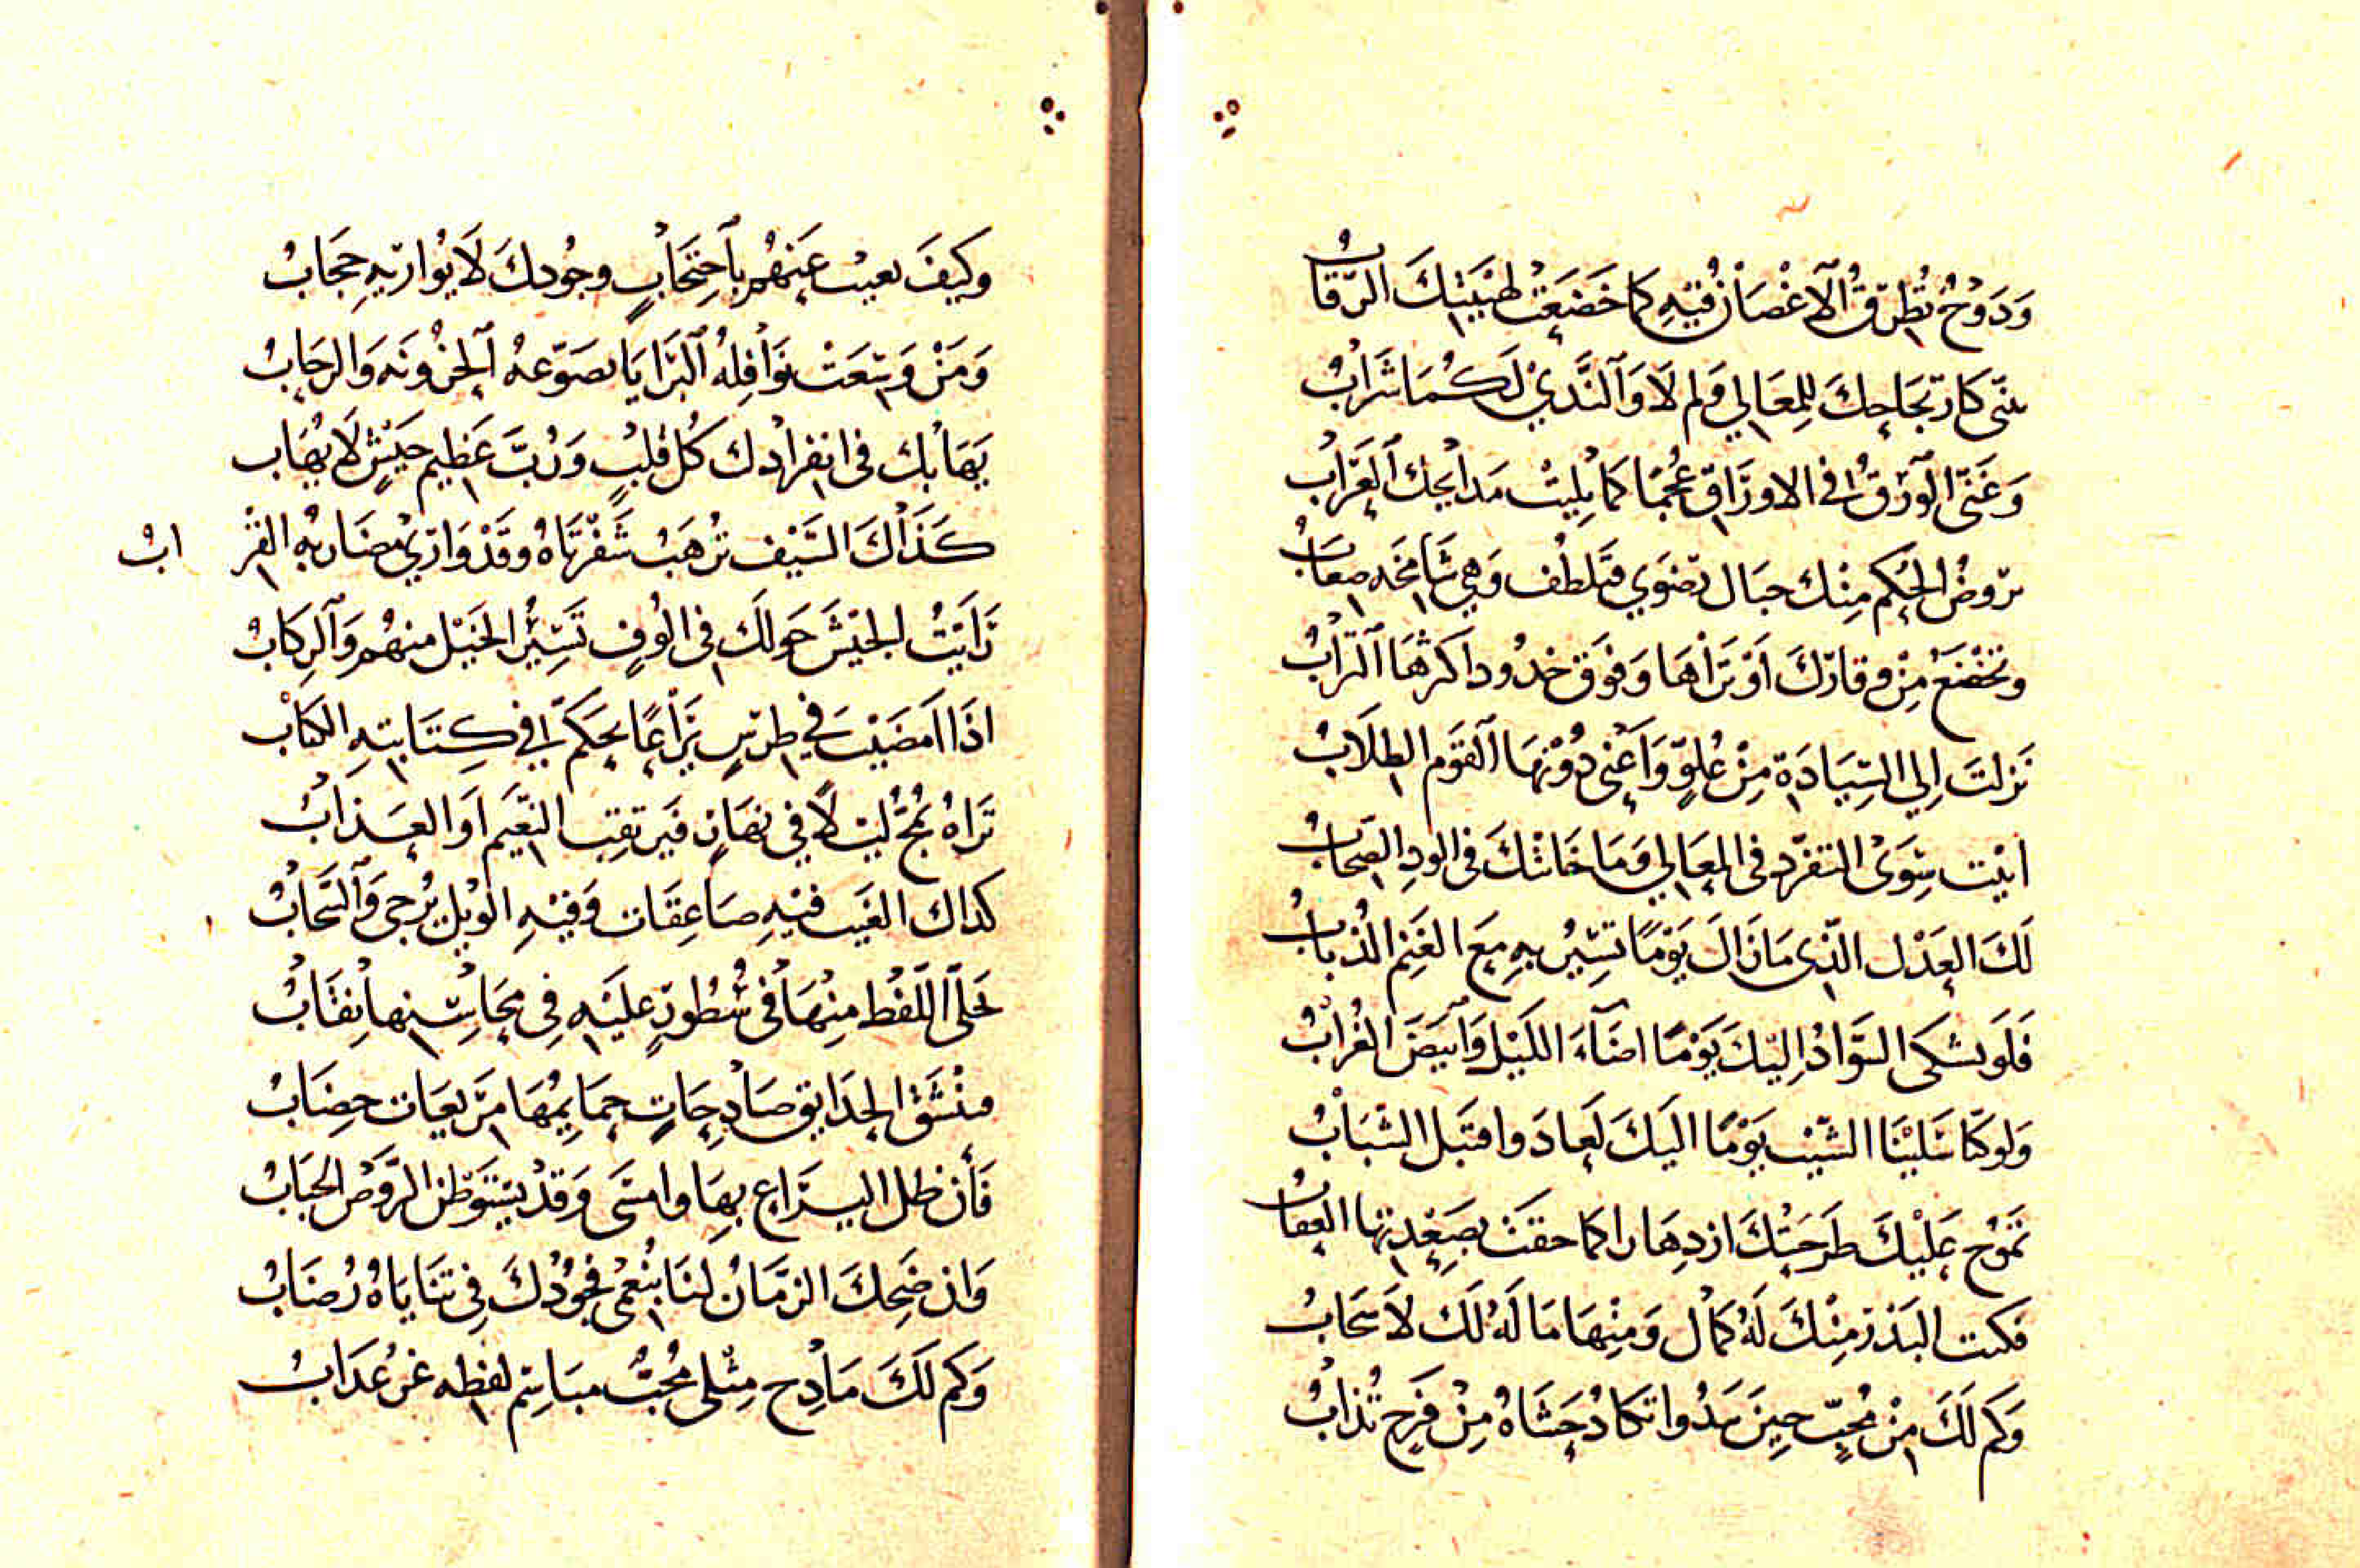 وَدَوْحٌ تُطْرِقُ الْأَغْصَانُ فِيهِ كَمَا خَضَعَتْ لِهَيْبَتِكَ الرِّقَابُ
كَارتجَاحِكَ لِلمَعَالِي وَلِم لَا وَالنَّدَي لَكُمَا شَرَابُ
وَغَنَّى الْوُرْقُ فِي الاورَاقِ عُجْمًا كَمَا تُلِيَتْ مَدَايحُكَ العِرَابُ
يَرُوضُ الحِكَمُ مِنْكَ جبَال رَضوَي فَتَلطُف وَهِي شَامِخَه صِعَابُ
وَتَخْضَعُ مِنْ وقَارِكَ اَوْ تَرَاهَا وَفَوقَ خدُود اكثرهَا التُّرَابُ
نَزلتَ اِلِي السِّيَادَةِ مِنْ عُلوٍّ وَاَعْنِي دُوْنَهَا القَوم الطِلَابُ
ابَيْت سِوَى التفَرّد فى المعَالِي وَمَا خَانتْكَ فى الودِ الصِّحَابُ
لَكَ العَدْل الَّذِى مَا زَالَ يَوْمًا تَسِيْرُ بِهِ مَعَ الغَنَمِ الذُّبابُ
فَلَو يشكى السَّوَادُ اِليكَ يَوْمًا اضَآءَ اللَيْل وَاَبْيَضَّ الغُرَابُ
وَلو كنَّا شَكَيْنَا الشَّيْبَ يَوْمًا اليَكَ لَعادَ واقتَبَل الشّبَابُ
تَمُوْجُ عَلَيْكَ طَرحَتُكَ ازدِهَارا كمَا حقَتْ بصَعْدتها العقابُ
فكنت البَدْر مِنْكَ لَهُ كَمَال وَمِنْهَا مَا لَهُ لَكَ لاَ سَحَابُ
وَكم لَكَ مِنْ مُحِبٍّ حِينَ تَبدُوا تكَادُ حَشَاهُ مِنْ فَرَحٍ تُذَابُ
وَكيَفَ تغيب عَنهُم بِاحتِجَابٍ وجُودكَ لَا يُوَارِيهِ حِجَابُ
وَمَنْ وَسِعَتْ نَوَافِلُهُ البَرَايَا تضوّعهُ الحزُونَه وَالرحَابُ
يَهَابُك فى انفرَادِك كُل قَلبٍ وَرُبَّ عَظِيم جَيْشٍ لَا يُهَاب
كَذَاكَ السَّيْف تُرهَبُ شَفْرَتَاهُ وقَدْ وَارَيْ مضَاربهُ القْر ابُ
رَاَيْتُ الجَيْشَ حَولَكَ فى الُوفٍ تَسِيْرُ الخَيْل منهُم وَالرِكَابُ
اذَا اَمضَيْت فِي طِرسٍ يَرَاعًا تحَكَّم فِي كِتَابتِهِ الكتَابُ
تَرَاهُ يَمجُّ لَيْلاً فِي نهَارٍ فَيرتقبُ النَّعِيمُ اَوَ العَذَابُ
كذاك الغَيث فيْهِ صَاعِقَات وَفيْهِ الوَبْل يُرجى وَالسَّحَابُ
تَحلَّى اللَّفْظ مِنْهَا فى سُطُورٍ عَليْهِ فِى محَاسِنِهَا نِقَابُ
الحدَايق صَادِحَات حمَايمُهَا خِضَابُ
فَاَن ظل اليَرَاع بهَا وامسَى وَقدْ يَسْتَوطِن الرَّوْضُ الحبَابُ
وَان ضَحِكَ الزَّمَانُ لنَا بنُعْمى فجُوْدُكَ فِى ثَنَايَاهُ رُضَابُ
وَكم لَكَ مَادِح مِثْلى مُحبٌّ مبَاسِم لفظِه غرٌّ عذَابُ